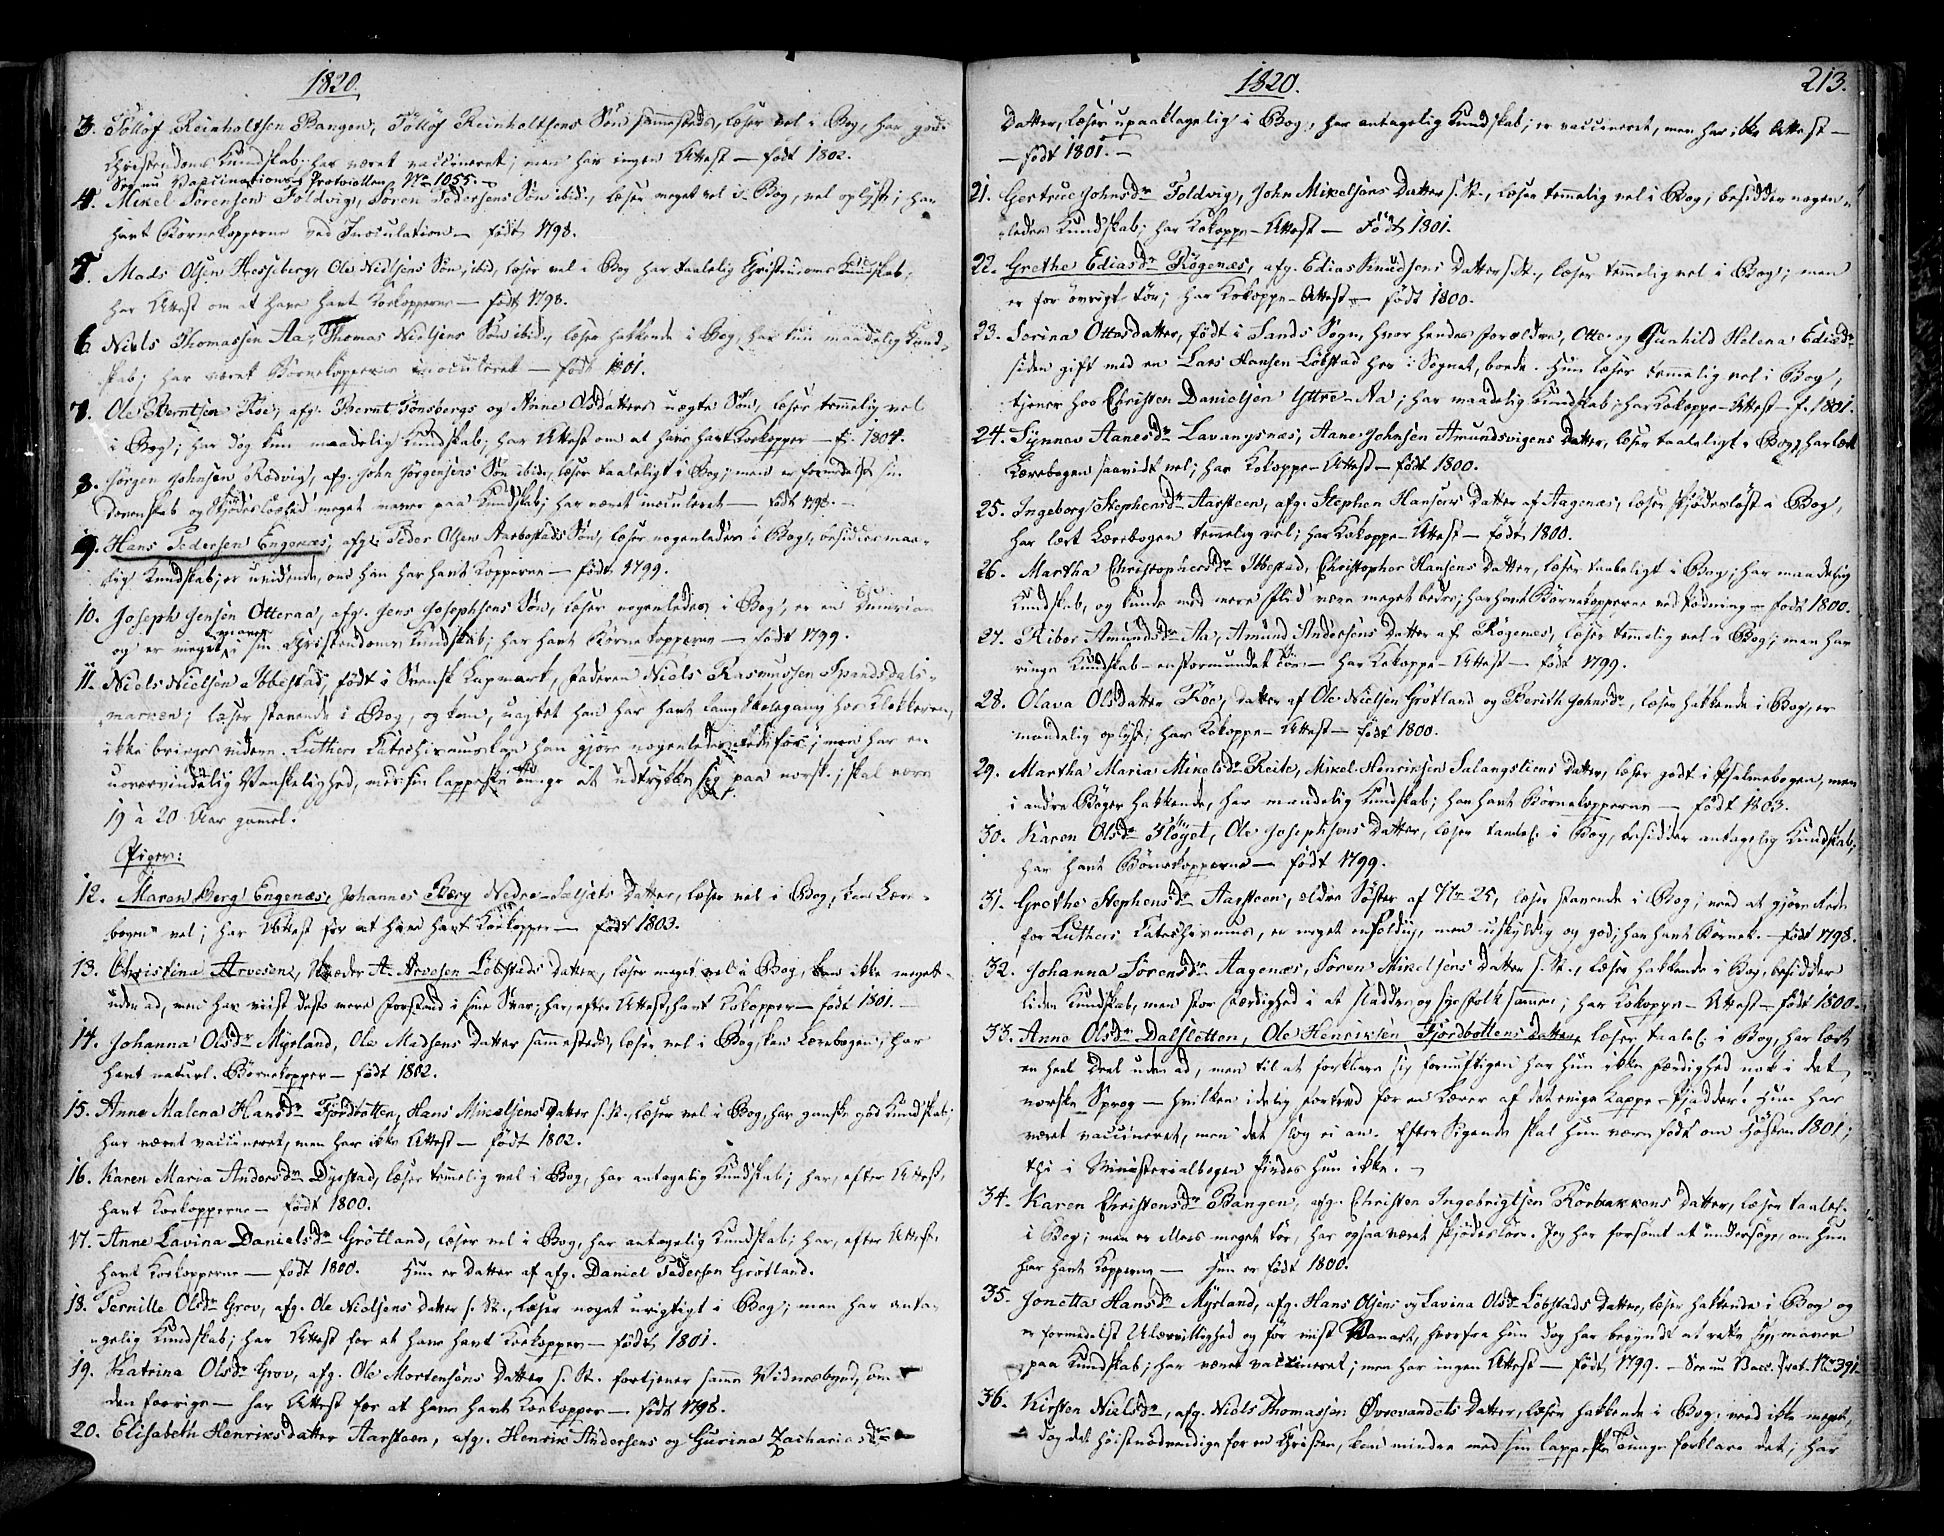 1820.
3. Tollof Reinholtsen Bangen, Tollof Reinholtsens Søn sammesteds, læser vel i Bog, har god
Christendoms Kundskab; har været vaccineret; men har ingen Attest — født 1802.
See nu Vaccinations Protocollen No 1055.
4. Mikel Sørensen Foldvig, Søren Pedersens Søn ibid., læser meget vel i Bog, vel oplyst; har
havt Børnekopperne ved Inoculation — født 1798.
5. Mads Olsen Hesseberg, Ole Nielsens Søn, ibid, læser vel i Bog har taalelig Christendoms Kundskab;
har Attest om at have havt Kokopperne — født 1798.
6 Niels Thomassen Aa, Thomas Nielsens Søn ibid., læser hakkende i Bog, har kun maadelig Kund-
skab; har været Børnekopperne inoculeret — født 1801.
7. Ole Berntsen Roe, afg. Bernt Tønsbergs og Anne Olsdatters uægte Søn, læser temmelig vel
i Bog; har dog kun maadelig Kundskab; har Attest om at have havt Kokopper — f. 1804.
8. Jørgen Johnsen Rødvig, afg. John Jørgensens Søn ibid., læser taaleligt i Bog; men er formedelst sin
Dovenskab og Skjødesløshed meget maver paa Kundskab; har været inoculeret — født 1798. —
9. Hans Pedersen Engenæs, afg. Peder Olsen Aarbostads Søn, læser nogenledes i Bog, besidder maa-
lig Kundskab; er uvidende, om han har havt Kopperne — født 1799.
10. Joseph Jensen Otteraa, afg. Jens Josephsens Søn, læser nogenledes i Bog, er en
og er meget maver i sin Christendoms Kundskab; har havt Børnekopperne — født 1799.
11. Niels Nielsen Ibbestad, født i Svensk Lapmark, Faderen Niels Rasmussen Spandsdals-
marken; læser stavende i Bog, og kan, uagtet han har havt lang Skolegang hos Klokkeren,
ikke bringes videre. Luthers Katechismus kan han gjøre nogenledes Rede for; men har en
uovervindelig Vanskelighed, med sin lappeske Tunge at udtrykke sig paa norsk; skal være
19 à 20 Aar gammel.
Piger:
12. Maren Berg Engenæs, Johannes Berg Nedre-Salsæts Datter, læser vel i Bog, kan Lære-
bogen vel; har Attest for at have havt Kokopper — født 1803.
13. Christina Arvesen, A. Arvesen Løbstads Datter, læser meget vel i Bog, kan ikke meget
uden ad, men har viist desto mere Forstand i sine Svar; har, efter Attest, havt Kokopper — født 1801. —
14. Johanna Olsdr Myrland, Ole Madsens Datter sammesteds, læser vel i Bog, kan Lærebogen, har
havt naturl. Børnekopper — født 1802.
15. Anne Malena Hansdr Fjordbotten, Hans Mikelsens Datter s. St., læser vel i Bog, har ganske god Kundskab;
har været vaccineret, men har ikke Attest — født 1802.
16. Karen Maria Andersdr Dyrstad, læser temmelig vel i Bog, har antagelig Kundskab; har, efter Attest,
havt Kokopperne — født 1800.
17. Anne Lavina Danielsdr Grøtland, læser vel i Bog, har antagelig Kundskab; har, efter Attest,
havt Kokopperne — født 1800. Hun er Datter af afg. Daniel Pedersen Grøtland.
18. Pernille Olsdr Grov, afg. Ole Nielsens Datter s. St., læser noget urigtigt i Bog; men har anta-
gelig Kundskab; har Attest for at have havt Kokopper — født 1801.
19. Katrina Olsdr Grov, afg. Ole Mortensøns Datter s. St. fortjener samme Vidnesbyrd, som
den forrige — har Attest for at have havt Kokopper — født 1798.
20. Elisabeth Henriksdatter Aarsteen, afg. Henrik Andersens og Gurina Zachariasdr
1820.
213.
Datter, læser upaaklagelig i Bog, har antagelig Kundskab; er vaccineret, men har ikke Attest —
— født 1801. —
21. Gertrue Johnsdr Foldvig, John Mikelsøns Datter s. St., læser temmelig vel i Bog, besidder nogen-
ledes Kundskab; har Kokoppe-Attest — født 1801.
22. Grethe Ediasdr Røgenæs, afg. Edias Knudsens Datter s. St., læser temmelig vel i Bog; men
er for øvrigt tør; har Kokoppe-Attest — født 1800.
23. Sorina Ottosdatter, født i Sands Sogn, hvor hendes Forældre, Otto og Gunhild Helena Ediasdr
siden gift med en Lars Hansen Løbstad her i Sognet, boede. Hun læser temmelig vel i Bog,
tjener hos Christen Danielsen Yttre-Aa; har maadelig Kundskab; har Kokoppe-Attest — f. 1801.
24. Synnov Aanesdr Lavangsnæs, Aane Johnsen Amundsvigens Datter, læser taaleligt i Bog, har lært
Lærebogen saavidt vel; har Kokoppe-Attest — født 1800.
25. Ingeborg Stephensdr Aarsteen, afg. Stephen Hansens Datter af Aagenæs, læser skjødesløst i Bog,
har lært Lærebogen temmelig vel; har Kokoppe-Attest — født 1800.
26. Martha Christophersdr Ibbestad, Christopher Hansens Datter, læser taaleligt i Bog; har maadelig
Kundskab, og kunde med mere Flid være meget bedre; har havt Børnekopperne ved Podning — født 1800.
27. Ribor Amundsdr Aa, Amund Andersens Datter af Røgenæs, læser temmelig vel i Bog; men har
ringe Kundskab — har Kokoppe-Attest — født 1799.
28. Olava Olsdatter Roe, Datter af Ole Nielsen Grøtland og Berith Johnsdr, læser hakkende i Bog, er
maadelig oplyst; har Kokoppe-Attest — født 1800.
29. Martha Maria Mikelsdr Reite, Mikel Henriksen Salangsliens Datter, læser godt i Psalmebogen, men
i andre Bøger hakkende, har maadelig Kundskab; har havt Børnekopperne — født 1803.
30. Karen Olsdr Fløyet, Ole Josephsens Datter, læser taalel. i Bog, besidder antagelig Kundskab,
har havt Børnekopperne — født 1799.
31. Grethe Stephensdr Aarsteen, ældre Søster af No 25, læser stavende i Bog; ved at gjøre Rede
for Luthers Katechismus, er meget enfoldig, men uskyldig og god; har havt Børnek. — født 1798.
32. Johanna Sørensdr Aagenæs, Søren Mikelsens Datter s. St., læser hakkende i Bog, besidder
liden Kundskab, men stor Færdighed i at sladder og lyve Folk sammen; har Kokoppe-Attest — født 1800.
33. Anne Olsdr Dalsletten, Ole Henriksen Fjordbottens Datter, læser taalel. i Bog, har lært
en heel Deel uden ad, men til at forklare sig fornuftigen har hun ikke Færdighed nok i det
norske Sprog — hvilken idelig Fortræd for en Lærer af det evige Lappe-Pjadder! Hun har
været vaccineret, men det slog ei an. Efter Sigende skal hun være født om Høsten 1801;
thi i Ministerialbogen findes hun ikke. —
34. Karen Christensdr Bangen, afg. Christen Ingebrigtsen Rørbakkens Datter, læser taalel.
i Bog; men er ellers meget tør, har ogsaa været skjødesløs. Jeg har forsømt at undersøge, om hun
har havt Kopperne — hun er født 1800.
35. Jonetta Hansdr Myrland, afg. Hans Olsens og Lavina Olsdr Løbstads Datter, læser hakkende i Bog og
er formedelst Ulærvillighed og før vist Vanart, hvorfra hun dog har begyndt at rette sig, maver
paa Kundskab; har været vaccineret; men har ingen Attest — født 1799. — See nu Vacc. Prot. No 391
36. Kirsten Nielsdr, afg. Niels Thomassen Øvrevandets Datter, læser hakkende i Bog, veed ikke meget,
dog det høistnødvendige for en Christen, kan mindre med sin lappeske Tunge forklare det; har